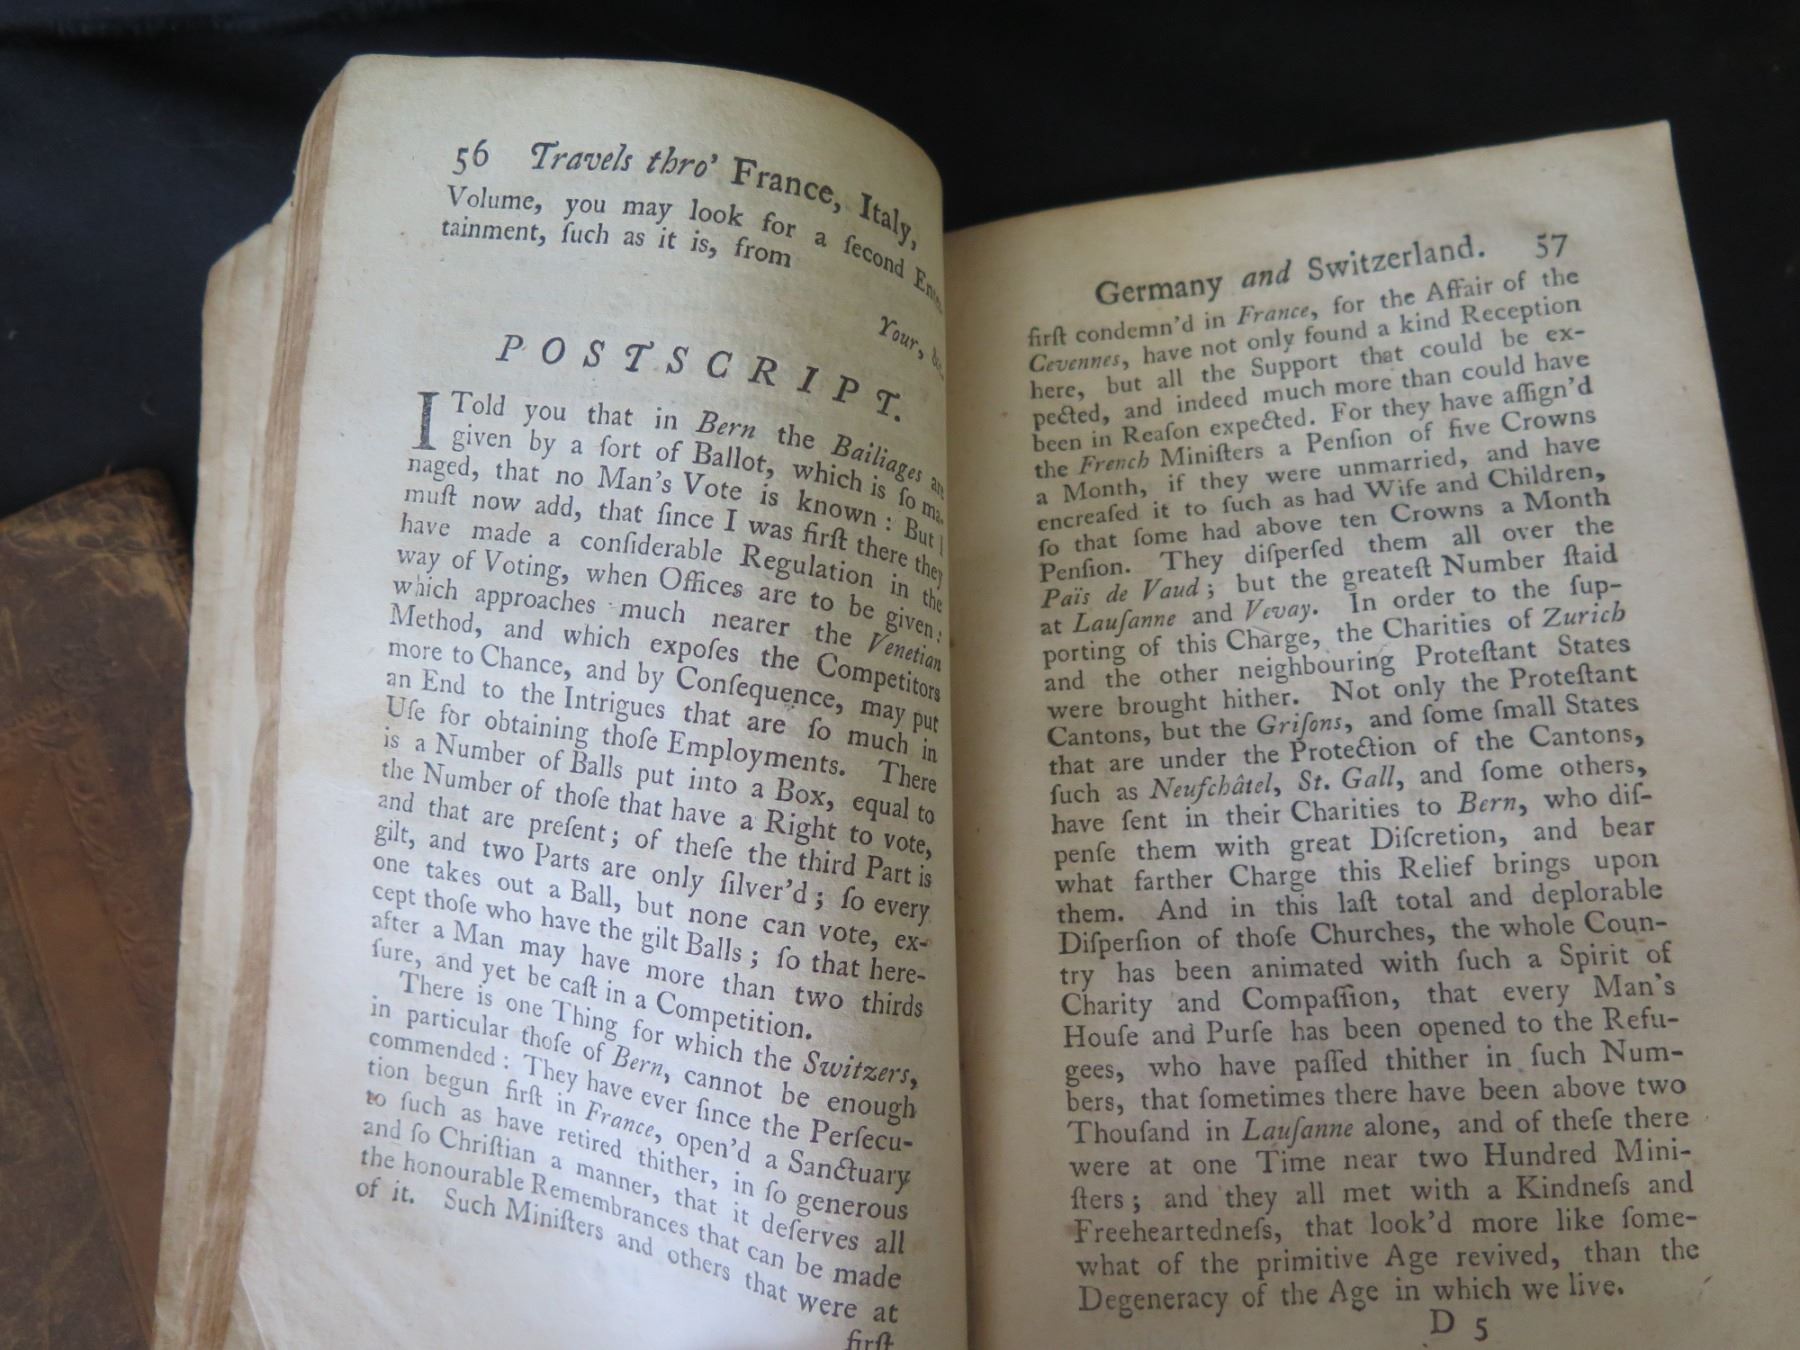 56 Travels thro' France, Italy,
Volume, you may look for a ſecond Enter-
tainment, ſuch as it is, from
Your, &c.
POSTSCRIPT.
I Told you that in Bern the Bailiages are
given by a ſort of Ballot, which is ſo ma-
naged, that no Man's Vote is known: But I
muſt now add, that ſince I was firſt there they
have made a conſiderable Regulation in the
way of Voting, when Offices are to be given;
which approaches much nearer the Venetian
Method, and which expoſes the Competitors
more to Chance, and by Conſequence, may put
an End to the Intrigues that are ſo much in
Uſe for obtaining thoſe Employments. There
is a Number of Balls put into a Box, equal to
the Number of thoſe that have a Right to vote,
and that are preſent; of theſe the third Part is
gilt, and two Parts are only ſilver'd; ſo every
one takes out a Ball, but none can vote, ex-
cept thoſe who have the gilt Balls; ſo that here-
after a Man may have more than two thirds
ſure, and yet be caſt in a Competition.
There is one Thing for which the Switzers,
in particular thoſe of Bern, cannot be enough
commended: They have ever ſince the Perſecu-
tion begun firſt in France, open'd a Sanctuary
to ſuch as have retired thither, in ſo generous
and ſo Chriſtian a manner, that it deſerves all
the honourable Remembrances that can be made
of it. Such Miniſters and others that were at
firſt
Germany and Switzerland. 57
firſt condemn'd in France, for the Affair of the
Cevennes, have not only found a kind Reception
here, but all the Support that could be ex-
pected, and indeed much more than could have
been in Reaſon expected. For they have aſſign'd
the French Miniſters a Penſion of five Crowns
a Month, if they were unmarried, and have
encreaſed it to ſuch as had Wife and Children,
ſo that ſome had above ten Crowns a Month
Penſion. They diſperſed them all over the
Païs de Vaud; but the greateſt Number ſtaid
at Lauſanne and Vevay. In order to the ſup-
porting of this Charge, the Charities of Zurich
and the other neighbouring Proteſtant States
were brought hither. Not only the Proteſtant
Cantons, but the Griſons, and ſome ſmall States
that are under the Protection of the Cantons,
ſuch as Neufchâtel, St. Gall, and ſome others,
have ſent in their Charities to Bern, who diſ-
penſe them with great Diſcretion, and bear
what farther Charge this Relief brings upon
them. And in this laſt total and deplorable
Diſperſion of thoſe Churches, the whole Coun-
try has been animated with ſuch a Spirit of
Charity and Compaſſion, that every Man's
Houſe and Purſe has been opened to the Refu-
gees, who have paſſed thither in ſuch Num-
bers, that ſometimes there have been above two
Thouſand in Lauſanne alone, and of theſe there
were at one Time near two Hundred Mini-
ſters; and they all met with a Kindneſs and
Freeheartedneſs, that look'd more like ſome-
what of the primitive Age revived, than the
Degeneracy of the Age in which we live.
D 5